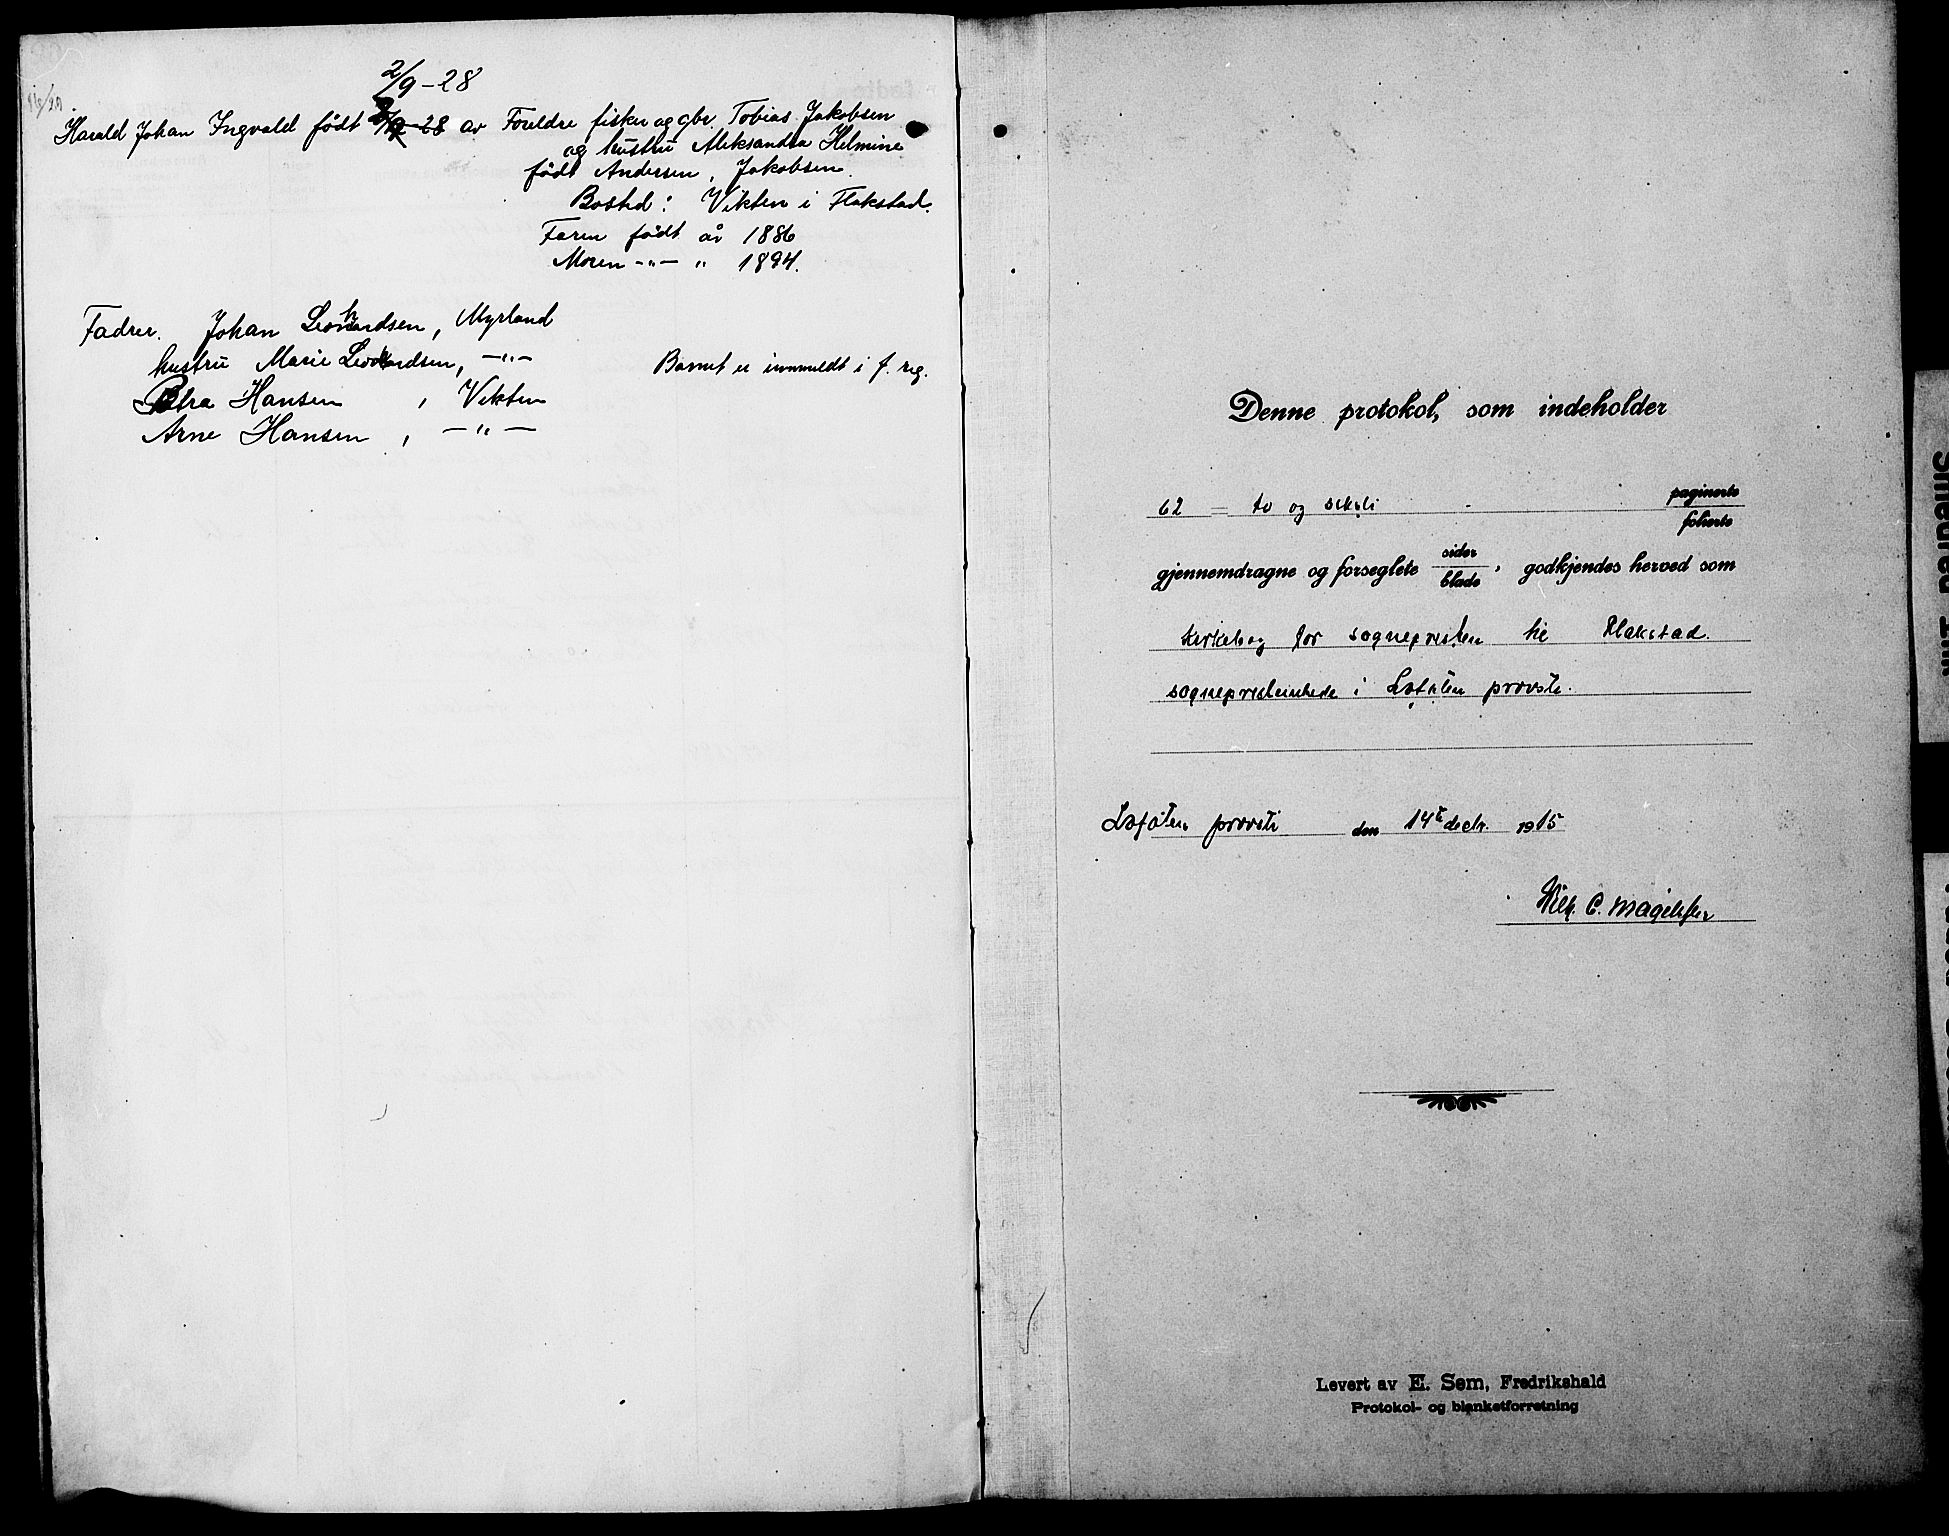 2/9-28
Harald Johan Ingvald født 2/9-28 av Foreldre fisker og gbr. Tobias Jakobsen
og hustru Aleksandra Helmine
født Andersen, Jakobsen.
Bosted: Vikten i Flakstad.
Faren født år 1886
Moren -"- " 1894.
Fadrer. Johan Leonhardsen, Myrland
hustru Marie Leonhardsen, -"-
Barnet er innmeldt i f. reg.
Petra Hansen , Vikten
Arne Hansen , -"-
Denne protokol, som indeholder
62 = to og seksti paginerte
folierte
gjennemdragne og forseglete sider
blade, godkjendes herved som
kirkebog for sognepresten til Flakstad
sogneprestembede i Lofoten provsti.
Lofoten provsti den 14te decbr. 1915
Wilh. C. Magelssen
Levert av E. Sem, Fredrikshald
Protokol- og blanketforretning